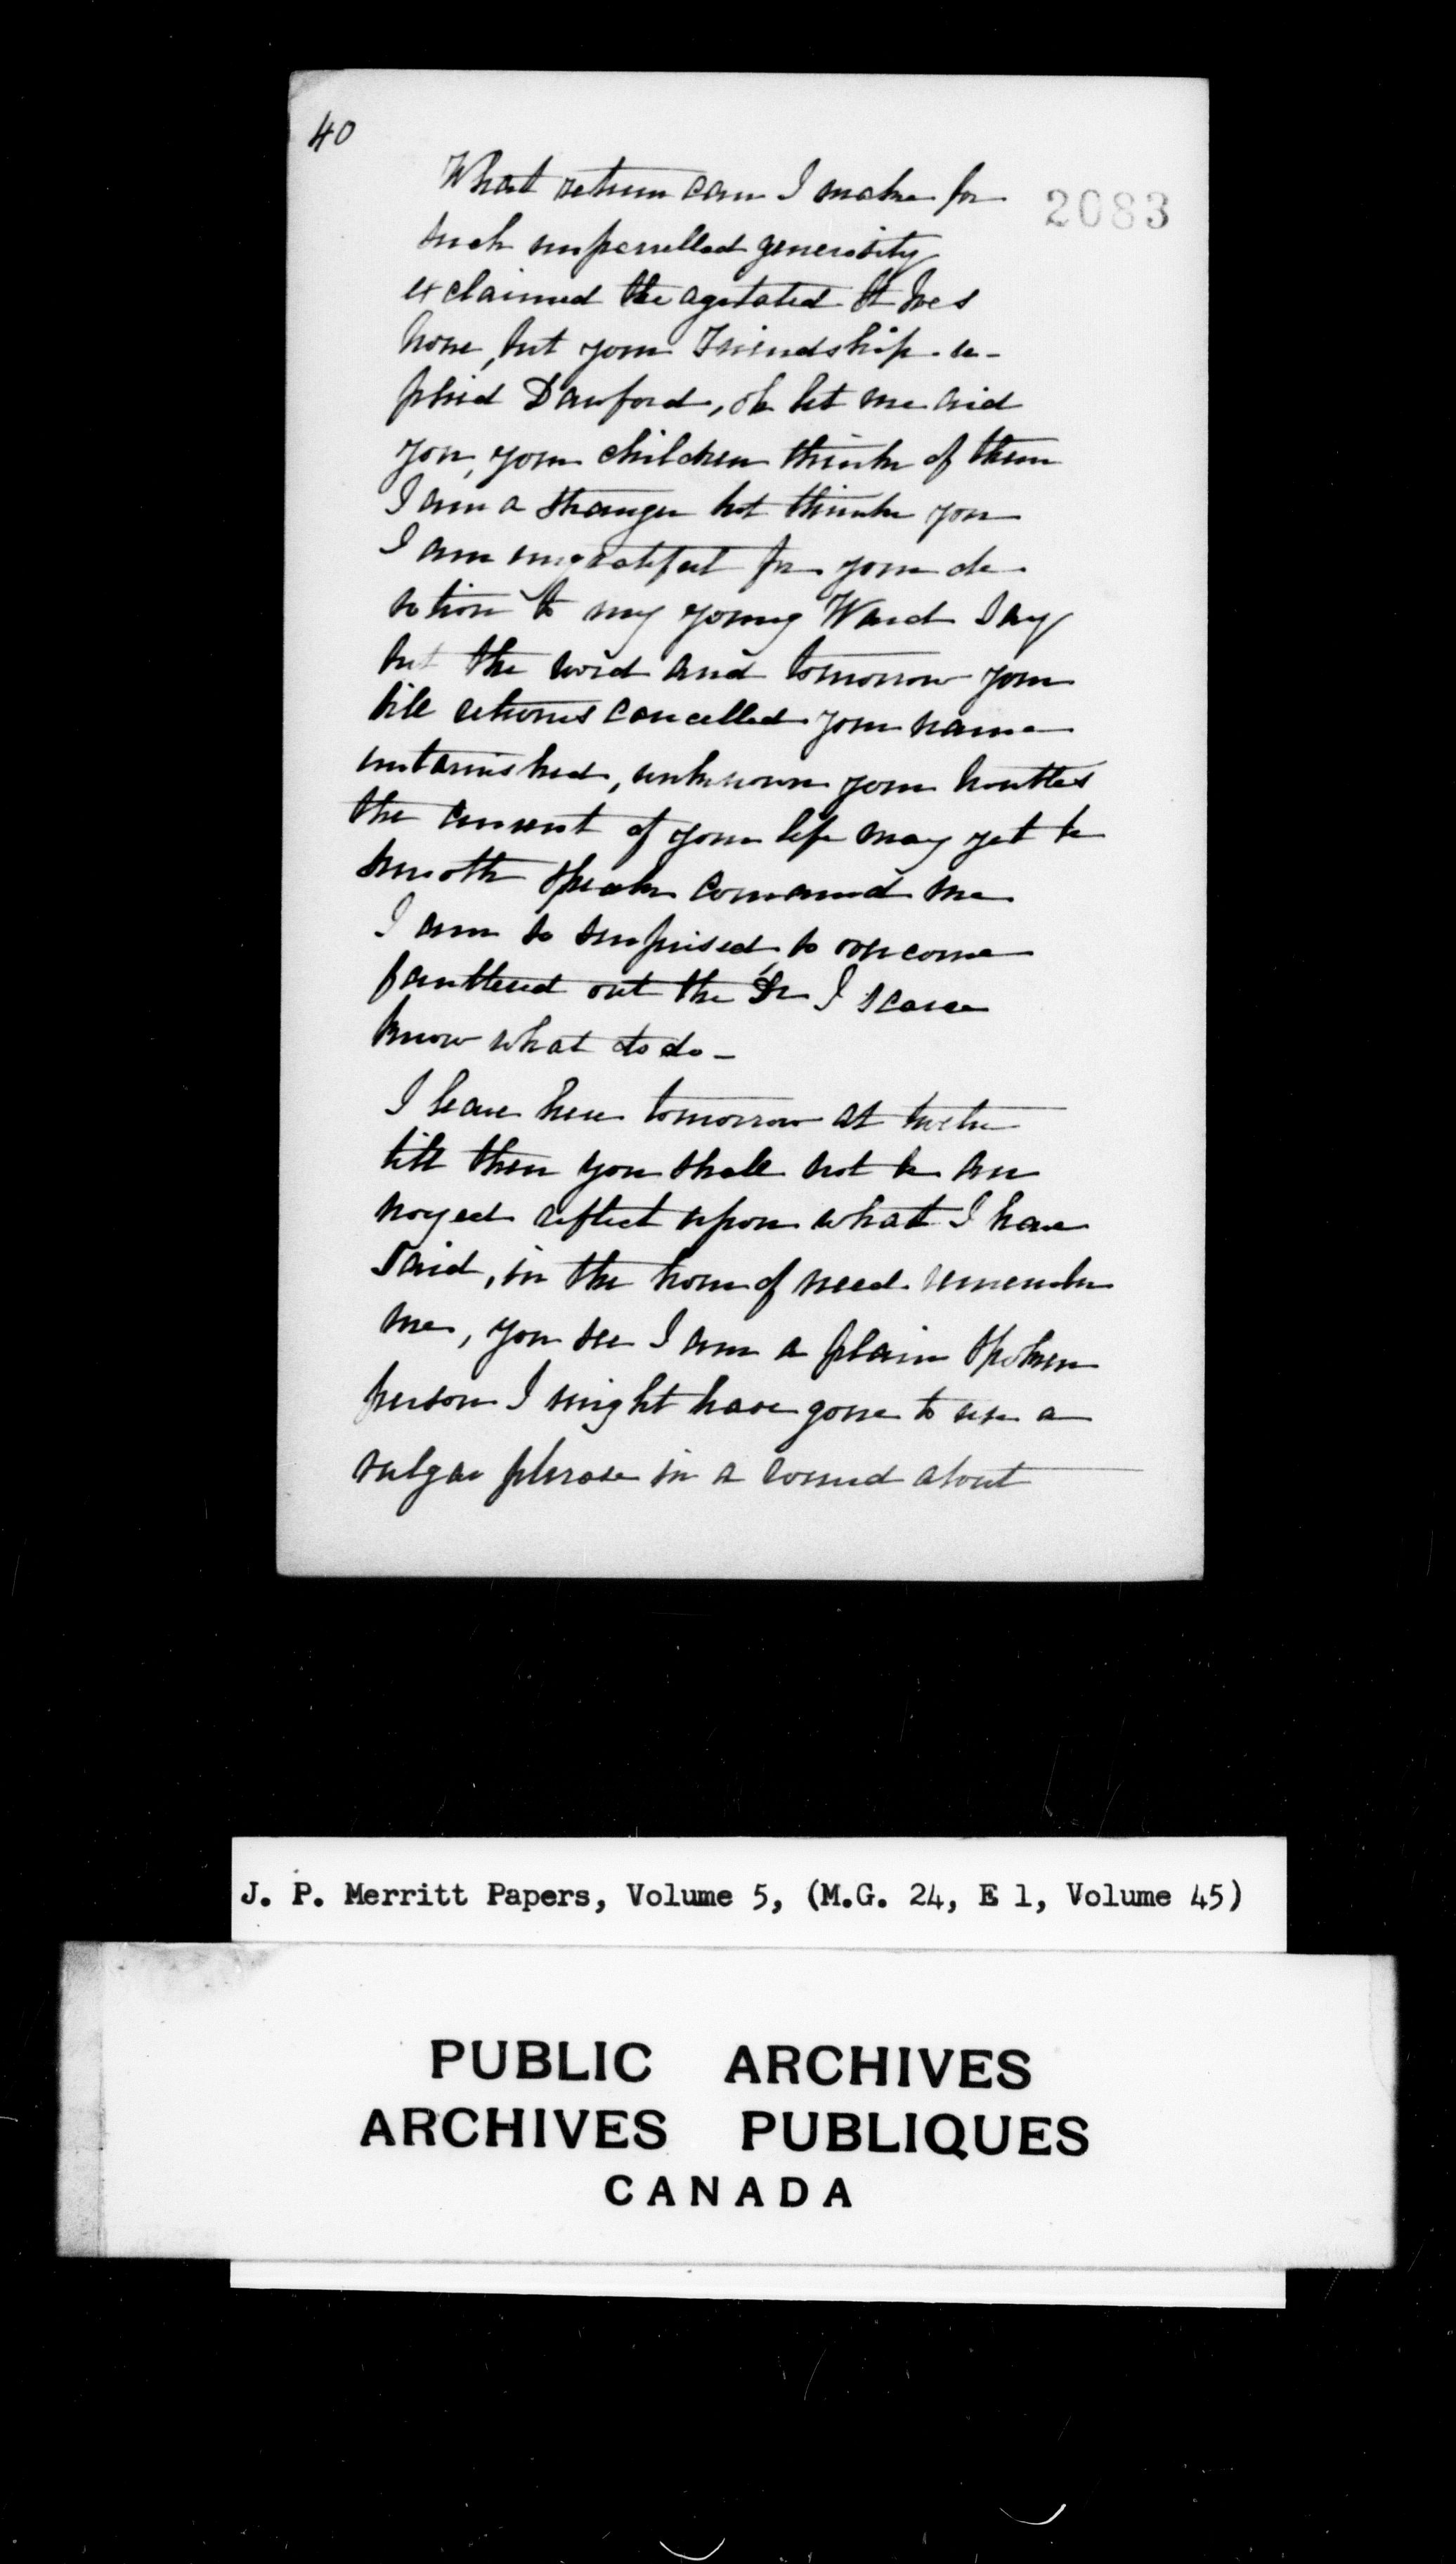 40
2083
What return can I make for
such unparrelled generosity
exclaimed the agetated St Ives
None, but your Friendship - re-
plied Danford, oh let me aid
you, your children think of them
I am a stranger but think you
I am ungrateful for your de-
votion to my young Ward Say
but the word and tomorrow your
bill returns cancelled your name
untarnished, unknown your troubles
the current of your life may yet be
smooth speak command me
I am so surprised, so overcome
fauttered out the Dr I scarce
know what to do -
I leave here tomorrow at twelve
till then you shall not be an
noyed reflect upon what I have
said, in the hour of need remember
me, you see I am a plain spoken
person I might have gone to use a
vulgar phrase in a round about
J. P. Merritt Papers, Volume 5, (M.G. 24, E 1, Volume 45)
PUBLIC ARCHIVES
ARCHIVES PUBLIQUES
CANADA